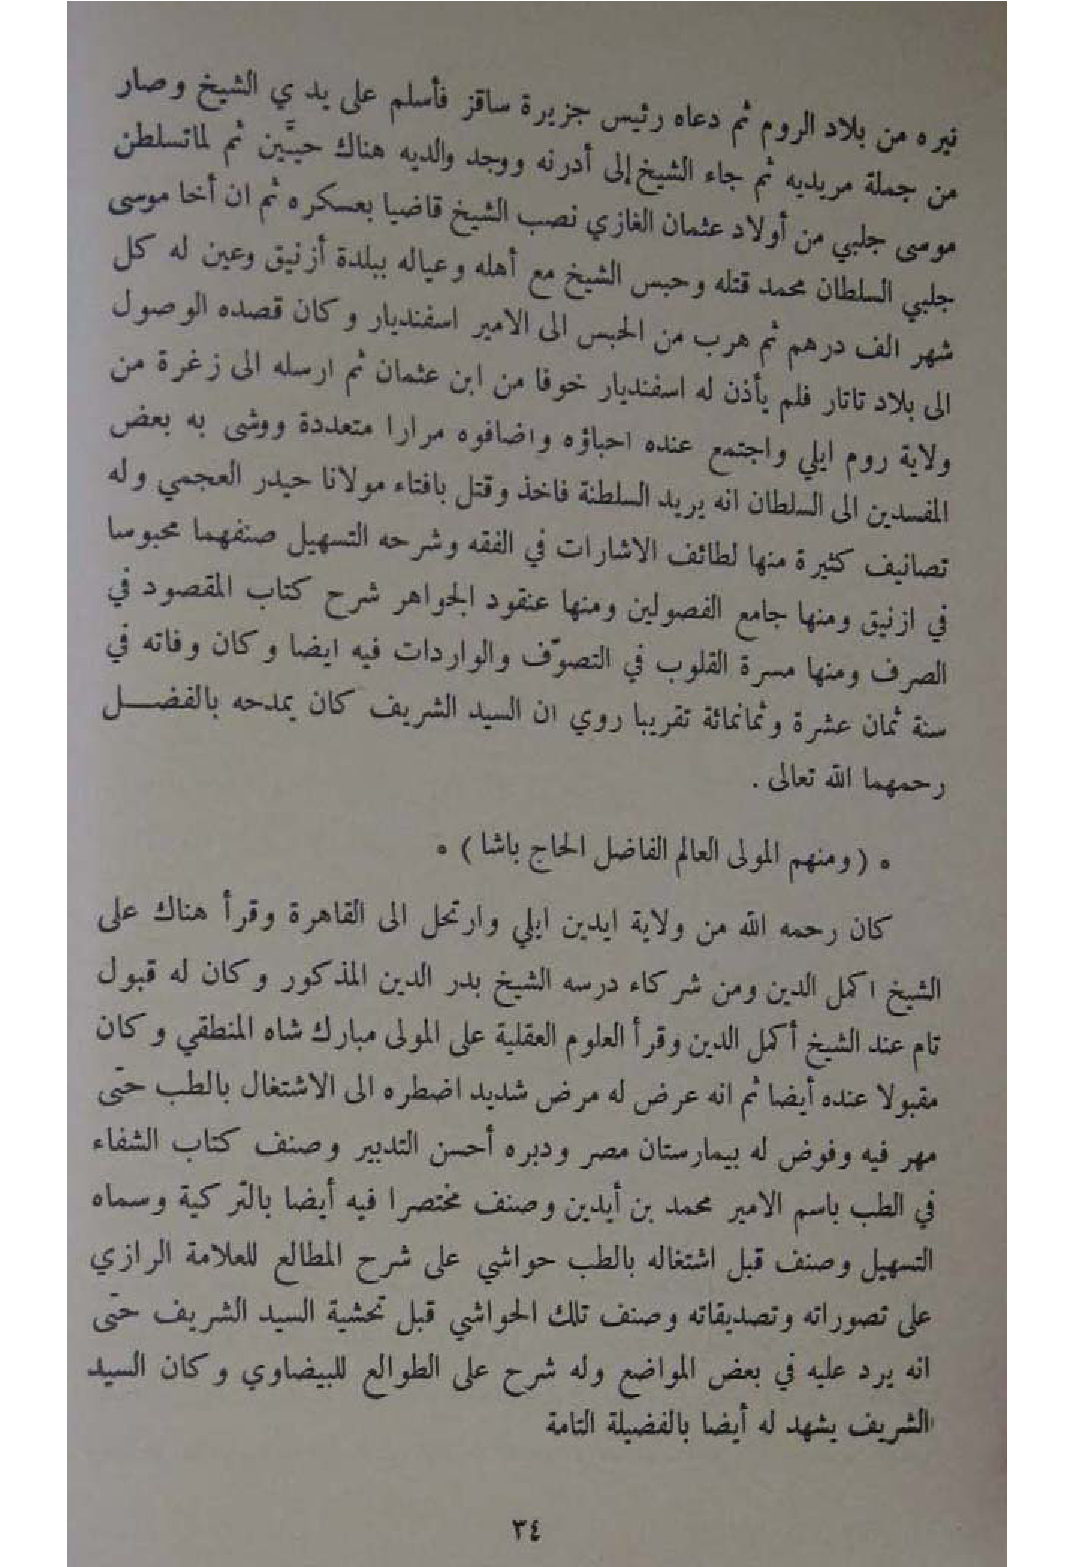 تيره من بلاد الروم ثم دعاه رئيس جزيرة ساقز فأسلم على يد ي الشيخ وصار
من جملة مريديه ثم جاء الشيخ إلى أدرنه ووجد والديه هناك حيَّين ثم لما تسلطن
موسى جلبي من أولاد عثمان الغازي نصب الشيخ قاضيا بعسكره ثم ان أخا موسى
جلبي السلطان محمد قتله وحبس الشيخ مع أهله وعياله ببلدة أزنيق وعين له كل
شهر الف درهم ثم هرب من الحبس الى الامير اسفنديار وكان قصده الوصول
الى بلاد تاتار فلم يأذن له اسفنديار خوفا من ابن عثمان ثم ارسله الى زغرة من
ولاية روم ايلي واجتمع عنده احباؤه واضافوه مرارا متعددة ووشى به بعض
المفسدين الى السلطان انه يريد السلطنة فاخذ وقتل بافتاء مولانا حيدر العجمي وله
تصانيف كثيرة منها لطائف الاشارات في الفقه وشرحه التسهيل صنفهما محبوسا
في ازنيق ومنها جامع الفصولين ومنها عنقود الجواهر شرح كتاب المقصود في
الصرف ومنها مسرة القلوب في التصوّف والواردات فيه ايضا وكان وفاته في
سنة ثمان عشرة وثمانمائة تقريبا روي ان السيد الشريف كان يمدحه بالفضـــل
رحمهما الله تعالى .
* ( ومنهم المولى العالم الفاضل الحاج باشا ) *
كان رحمه الله من ولاية ايدين ايلي وارتحل الى القاهرة وقرأ هناك على
الشيخ اكمل الدين ومن شركاء درسه الشيخ بدر الدين المذكور وكان له قبول
تام عند الشيخ أكمل الدين وقرأ العلوم العقلية على المولى مبارك شاه المنطقي وكان
مقبولا عنده أيضا ثم انه عرض له مرض شديد اضطره الى الاشتغال بالطب حتّى
مهر فيه وفوض له بيمارستان مصر ودبره أحسن التدبير وصنف كتاب الشفاء
في الطب باسم الامير محمد بن أيدين وصنف مختصرا فيه أيضا بالتركية وسماه
التسهيل وصنف قبل اشتغاله بالطب حواشي على شرح المطالع للعلامة الرازي
على تصوراته وتصديقاته وصنف تلك الحواشي قبل تحشية السيد الشريف حتّى
انه يرد عليه في بعض المواضع وله شرح على الطوالع للبيضاوي وكان السيد
الشريف يشهد له أيضا بالفضيلة التامة
٣٤